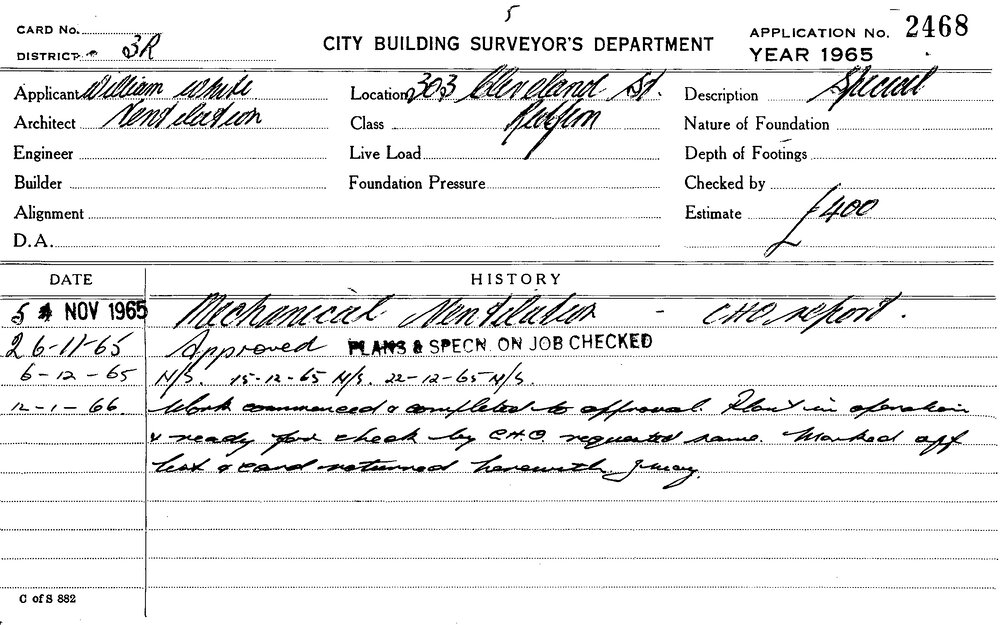 5
CARD No.
DISTRICT 3R
CITY BUILDING SURVEYOR'S DEPARTMENT
APPLICATION No. 2468
YEAR 1965
Applicant William White
Location 303 Cleveland St.
Description Special
Architect Ventilation
Class Redfern
Nature of Foundation
Engineer
Live Load
Depth of Footings
Builder
Foundation Pressure
Checked by
Alignment
Estimate £400
D.A.
£
DATE HISTORY
5 NOV 1965 Mechanical Ventilation - CHO report.
26-11-65 Approved PLANS & SPECN. ON JOB CHECKED
6-12-65 N/S. 15-12-65 N/S. 22-12-65 N/S.
12-1-66 Work commenced & completed to approval. Plant in operation
& ready for check by CHO requested same. Marked off
list & card returned herewith.
C of S 882